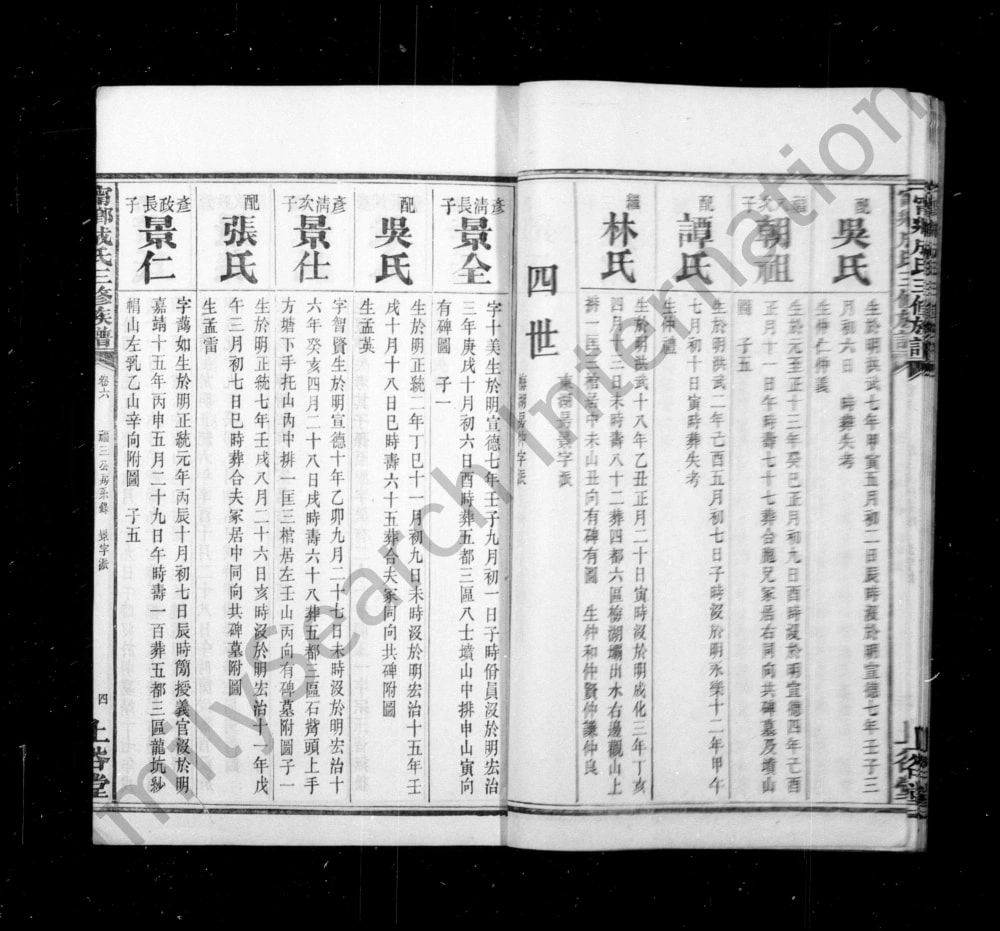 配
吳氏
生於明洪武七年甲寅五月初二日辰時沒於明宣德七年壬子三
月初六日 時葬失考
生仲仁仲義
朝祖
子
生於元至正十三年癸巳正月初九日酉時沒於明宣德四年己酉
正月十一日午時壽七十七葬合 兄冢居右同向共碑墓及墳山
圖 子五
配
譚氏
生於明洪武二年己酉五月初七日子時沒於明永樂十二年甲午
七月初十日寅時葬失考
生仲禮
繼
林氏
生於明洪武十八年乙丑正月二十日寅時沒於明成化三年丁亥
四月十三日未時壽八十二葬四都六區梅湖壩出水右邊觀山上
排一匡 棺居中未山丑向有碑有圖 生仲和仲賢仲謙仲良
四世
彥清長子
景全
字十美生於明宣德七年壬子九月初一日子時份員沒於明宏治
三年庚戌十月初六日酉時葬五都三區八士墳山中排申山寅向
有碑圖 子一
配
吳氏
生於明正統二年丁巳十一月初九日未時沒於明宏治十五年壬
戌十月十八日巳時壽六十五葬合夫冢同向共碑附圖
生孟英
彥清次子
景仕
字智賢生於明宣德十年乙卯九月二十七日未時沒於明宏治十
六年癸亥四月二十八日戌時壽六十八葬五都三區石觜頭上手
方塘下手托山丙中排一匡三棺居左壬山丙向有碑墓附圖子一
配
張氏
生於明正統七年壬戌八月二十六日亥時沒於明宏治十一年戊
午三月初七日巳時葬合夫冢居中同向共碑墓附圖
生孟雷
彥政長子
景仁
字藹如生於明正統元年丙辰十月初七日辰時簡授義官沒於明
嘉靖十五年丙申五月二十九日午時壽一百葬五都三區龍坑紗
帽山左乳乙山辛向附圖 子五
甯鄉成氏三修族譜
卷六
四
上谷堂
milySearch International